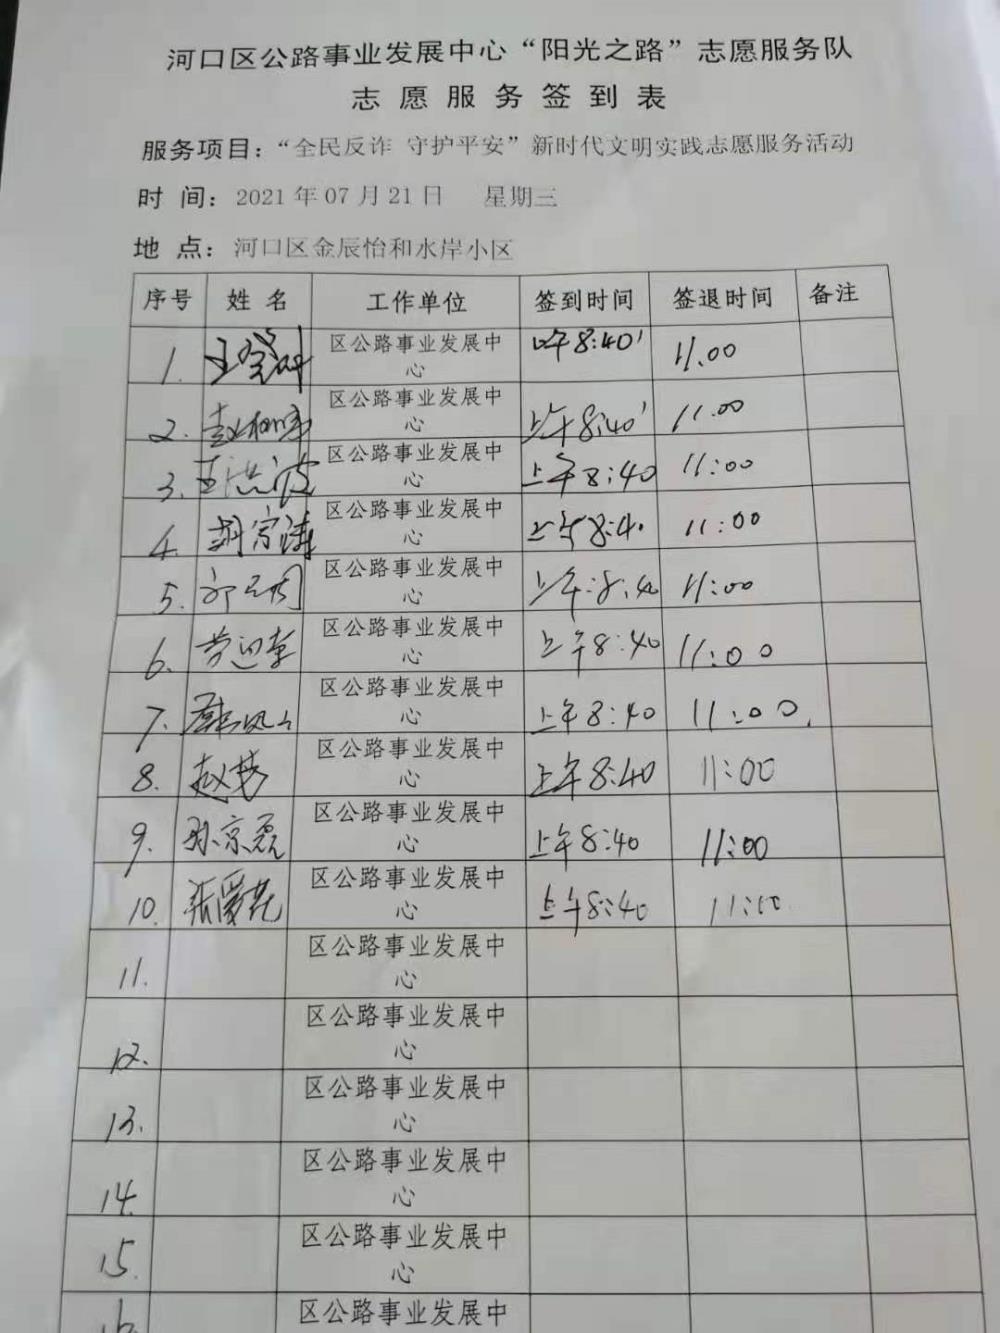 河口区公路事业发展中心“阳光之路”志愿服务队
志愿服务签到表
服务项目：“全民反诈 守护平安”新时代文明实践志愿服务活动
时 间：2021年07月21日 星期三
地 点：河口区金辰怡和水岸小区
序号 姓名 工作单位 签到时间 签退时间 备注
1. 王登科 区公路事业发展中心 上午8:40' 11.00
2. 区公路事业发展中心 上午8:40' 11.00
3. 王洪波 区公路事业发展中心 上午8:40 11:00
4. 胡宗涛 区公路事业发展中心 上午8:40 11:00
5. 区公路事业发展中心 上午:8:40 11:00
6. 区公路事业发展中心 上午8:40 11:00
7. 区公路事业发展中心 上午8:40 11:00.
8. 赵芳 区公路事业发展中心 上午8:40 11:00
9. 孙京磊 区公路事业发展中心 上午8:40 11:00
10. 张爱花 区公路事业发展中心 上午8:40 11:00
11. 区公路事业发展中心
12. 区公路事业发展中心
13. 区公路事业发展中心
14. 区公路事业发展中心
15. 区公路事业发展中心
区公路事业发展中